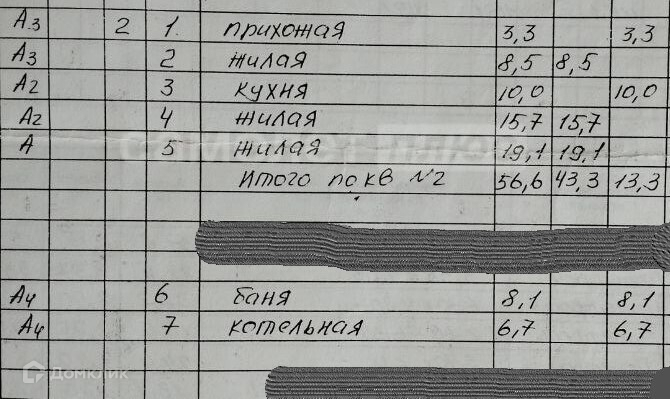 А3 2 1 прихожая 3,3 3,3
А3 2 жилая 8,5 8,5
А2 3 кухня 10,0 10,0
А2 4 жилая 15,7 15,7
А 5 жилая 19,1 19,1
Итого по кв №2 56,6 43,3 13,3
А4 6 баня 8,1 8,1
А4 7 котельная 6,7 6,7
Домклик